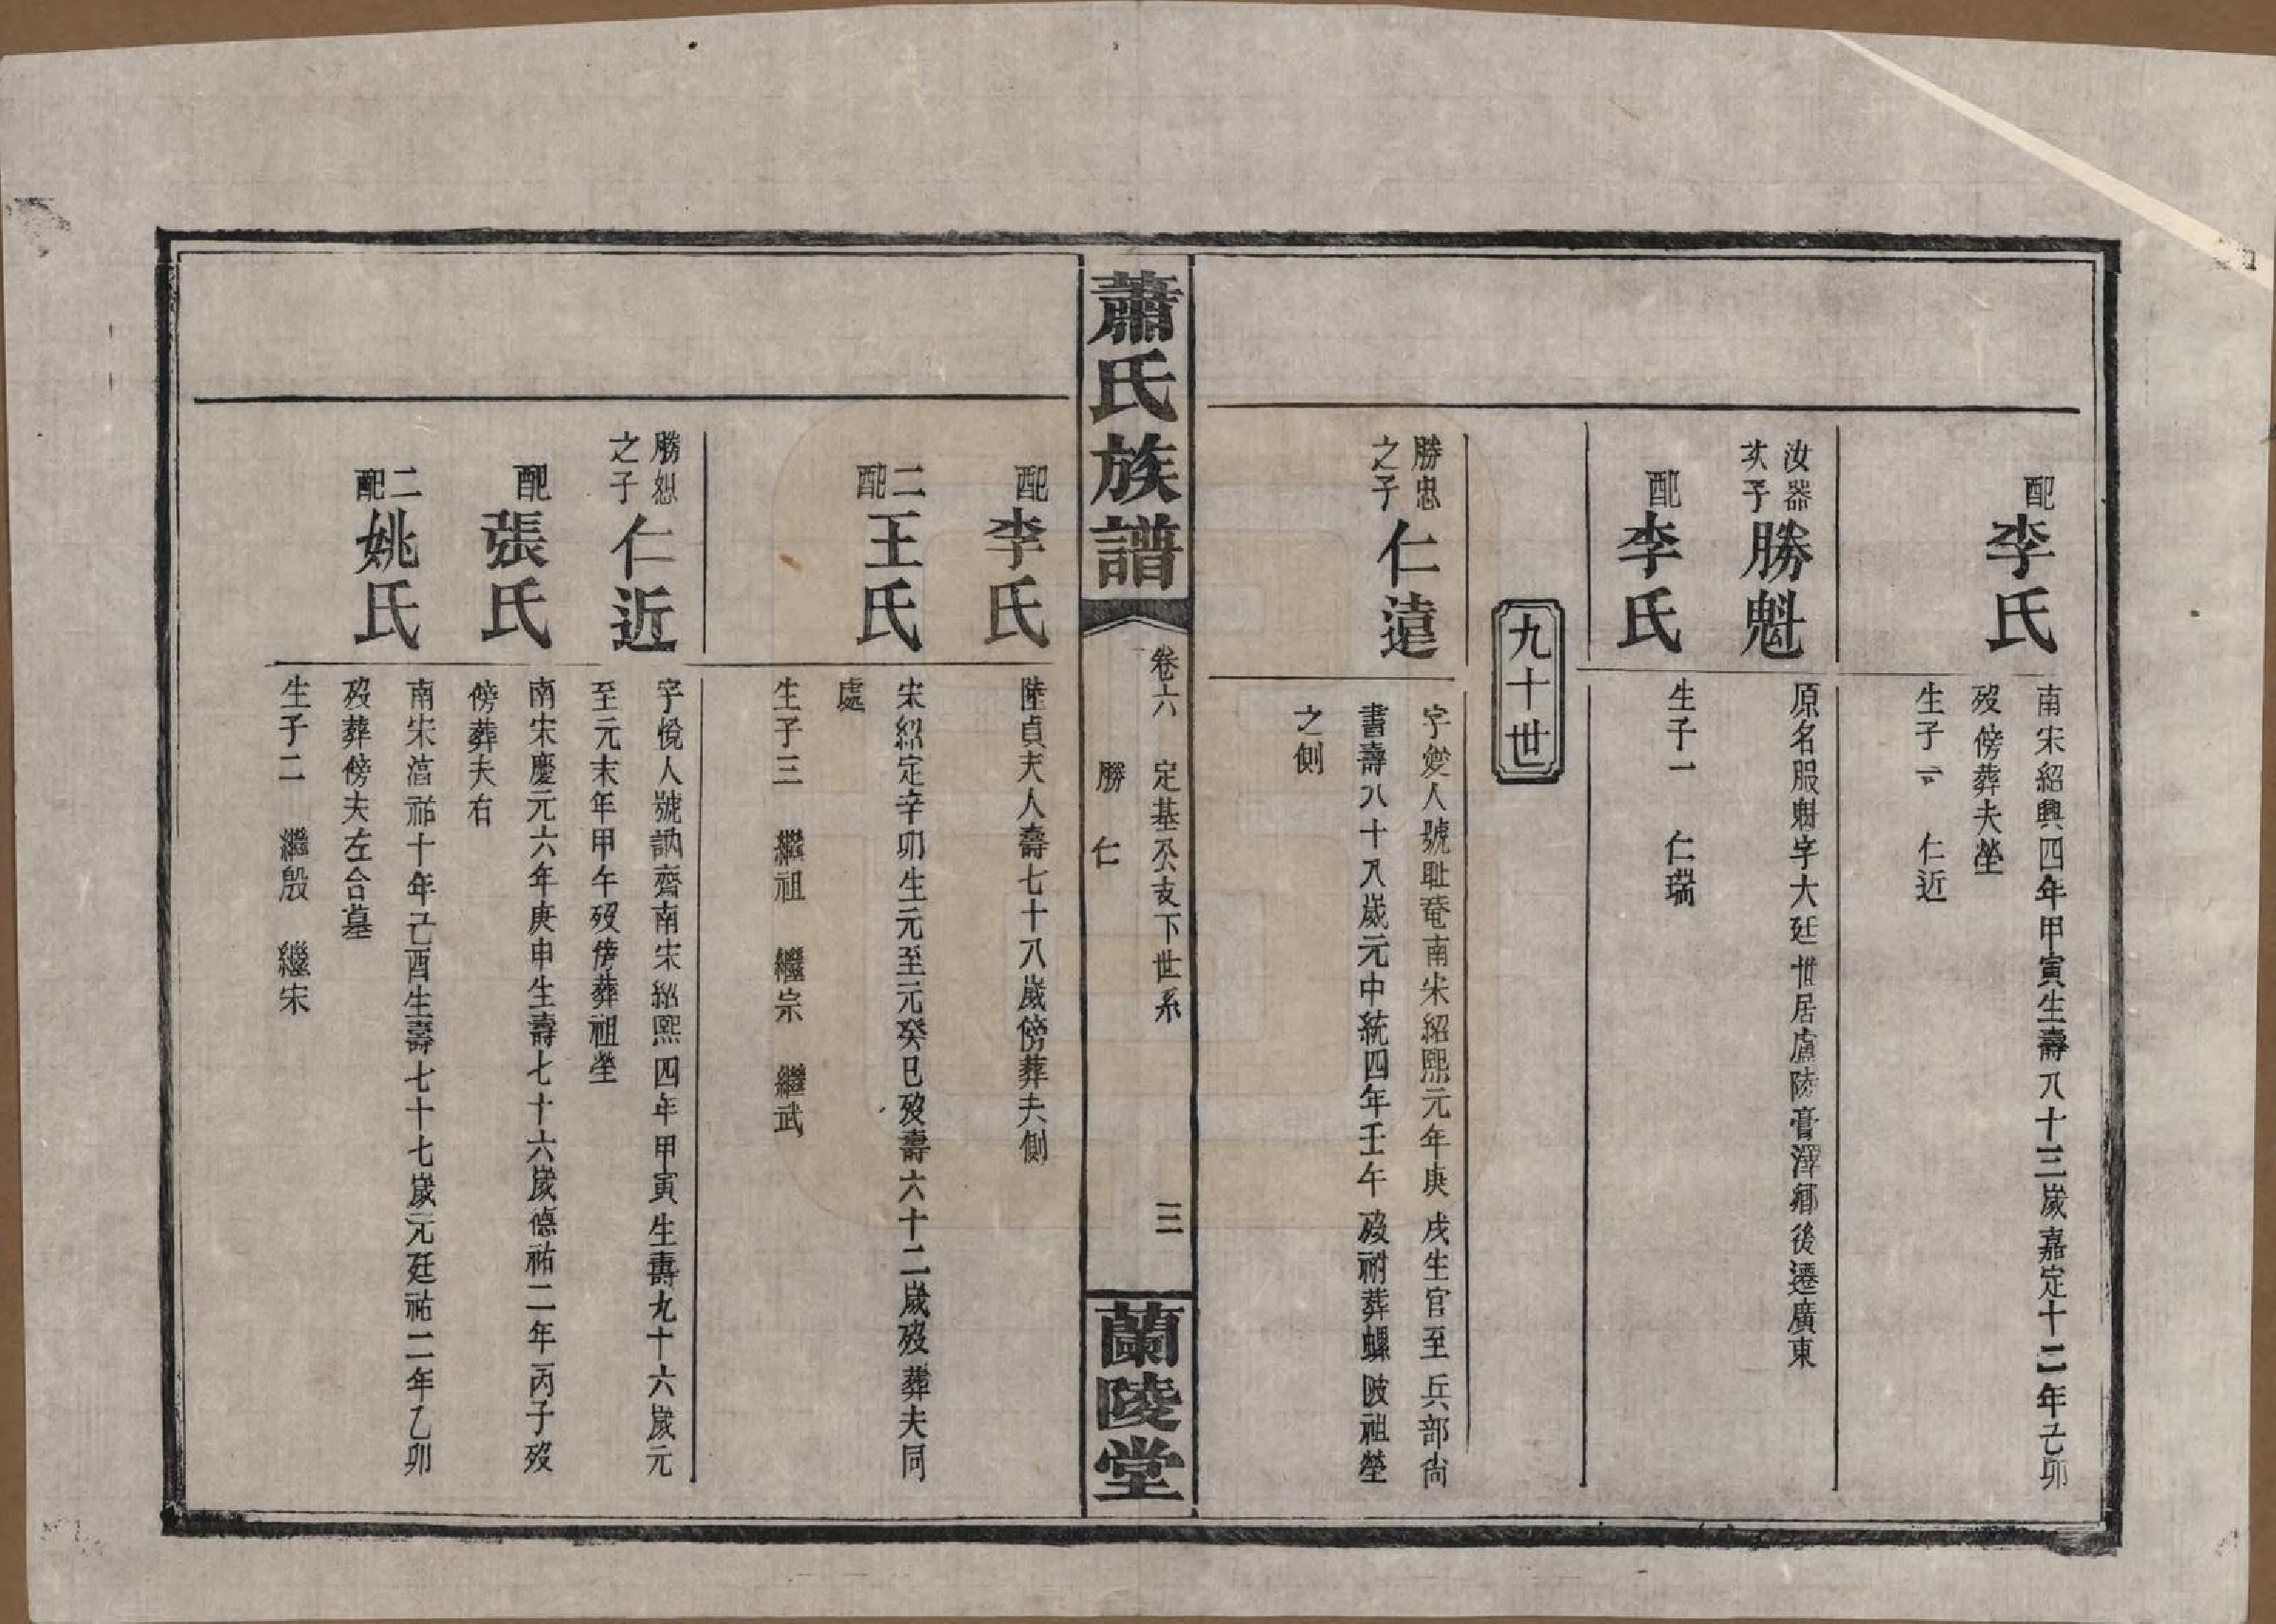 配
李氏
南宋紹興四年甲寅生壽八十三歲嘉定十二年己卯
歿傍葬夫塋
生子一　仁近
汝器
次子
勝魁
原名服魁字大廷世居廬陵膏澤鄉後遷廣東
配
李氏
生子一　仁瑞
九十世
勝忠
之子
仁遠
字夔人號耻菴南宋紹熙元年庚戌生官至兵部尙
書壽八十八歲元中統四年壬午歿祔葬螺陂祖塋
之側
蕭氏族譜
卷六　定基公支下世系　三
勝　仁
蘭陵堂
配
李氏
陸貞夫人壽七十八歲傍葬夫側
二
配
王氏
宋紹定辛卯生元至元癸巳歿壽六十二歲歿葬夫同
處
生子三　繼祖　繼宗　繼武
勝恕
之子
仁近
字悅人號訥齋南宋紹熙四年甲寅生壽九十六歲元
至元末年甲午歿傍葬祖塋
配
張氏
南宋慶元六年庚申生壽七十六歲德祐二年丙子歿
傍葬夫右
二
配
姚氏
南宋湻祐十年己酉生壽七十七歲元延祐二年乙卯
歿葬傍夫左合墓
生子二　繼殷　繼宋